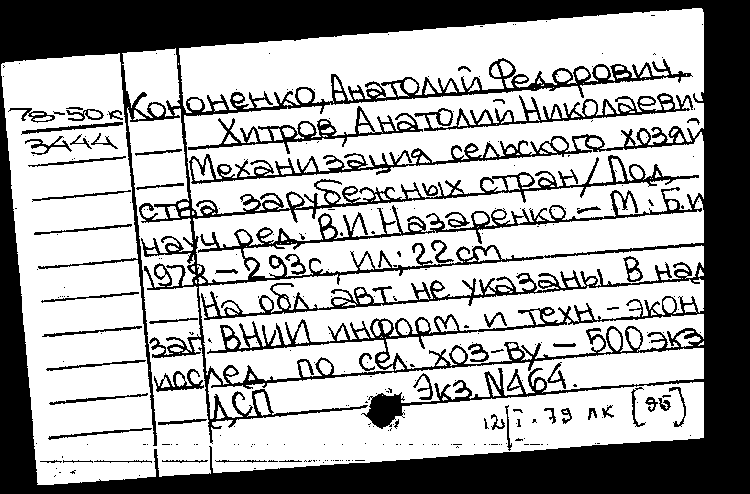 Кононенко, Анатолий Федорович,
78-50к
Хитров, Анатолий Николаевич
3444
Механизация сельского хозяй
ства зарубежных стран / Под
науч. ред. В.И. Назаренко. – М.: Б.и
1978. – 293с., ил; 22 cm.
На обл. авт. не указаны. В над
заг: ВНИИ информ. и техн. – экон.
исслед. по сел. хоз-ву. – 500 экз
ДСП Экз. N464.
12/I. 79 ЛК